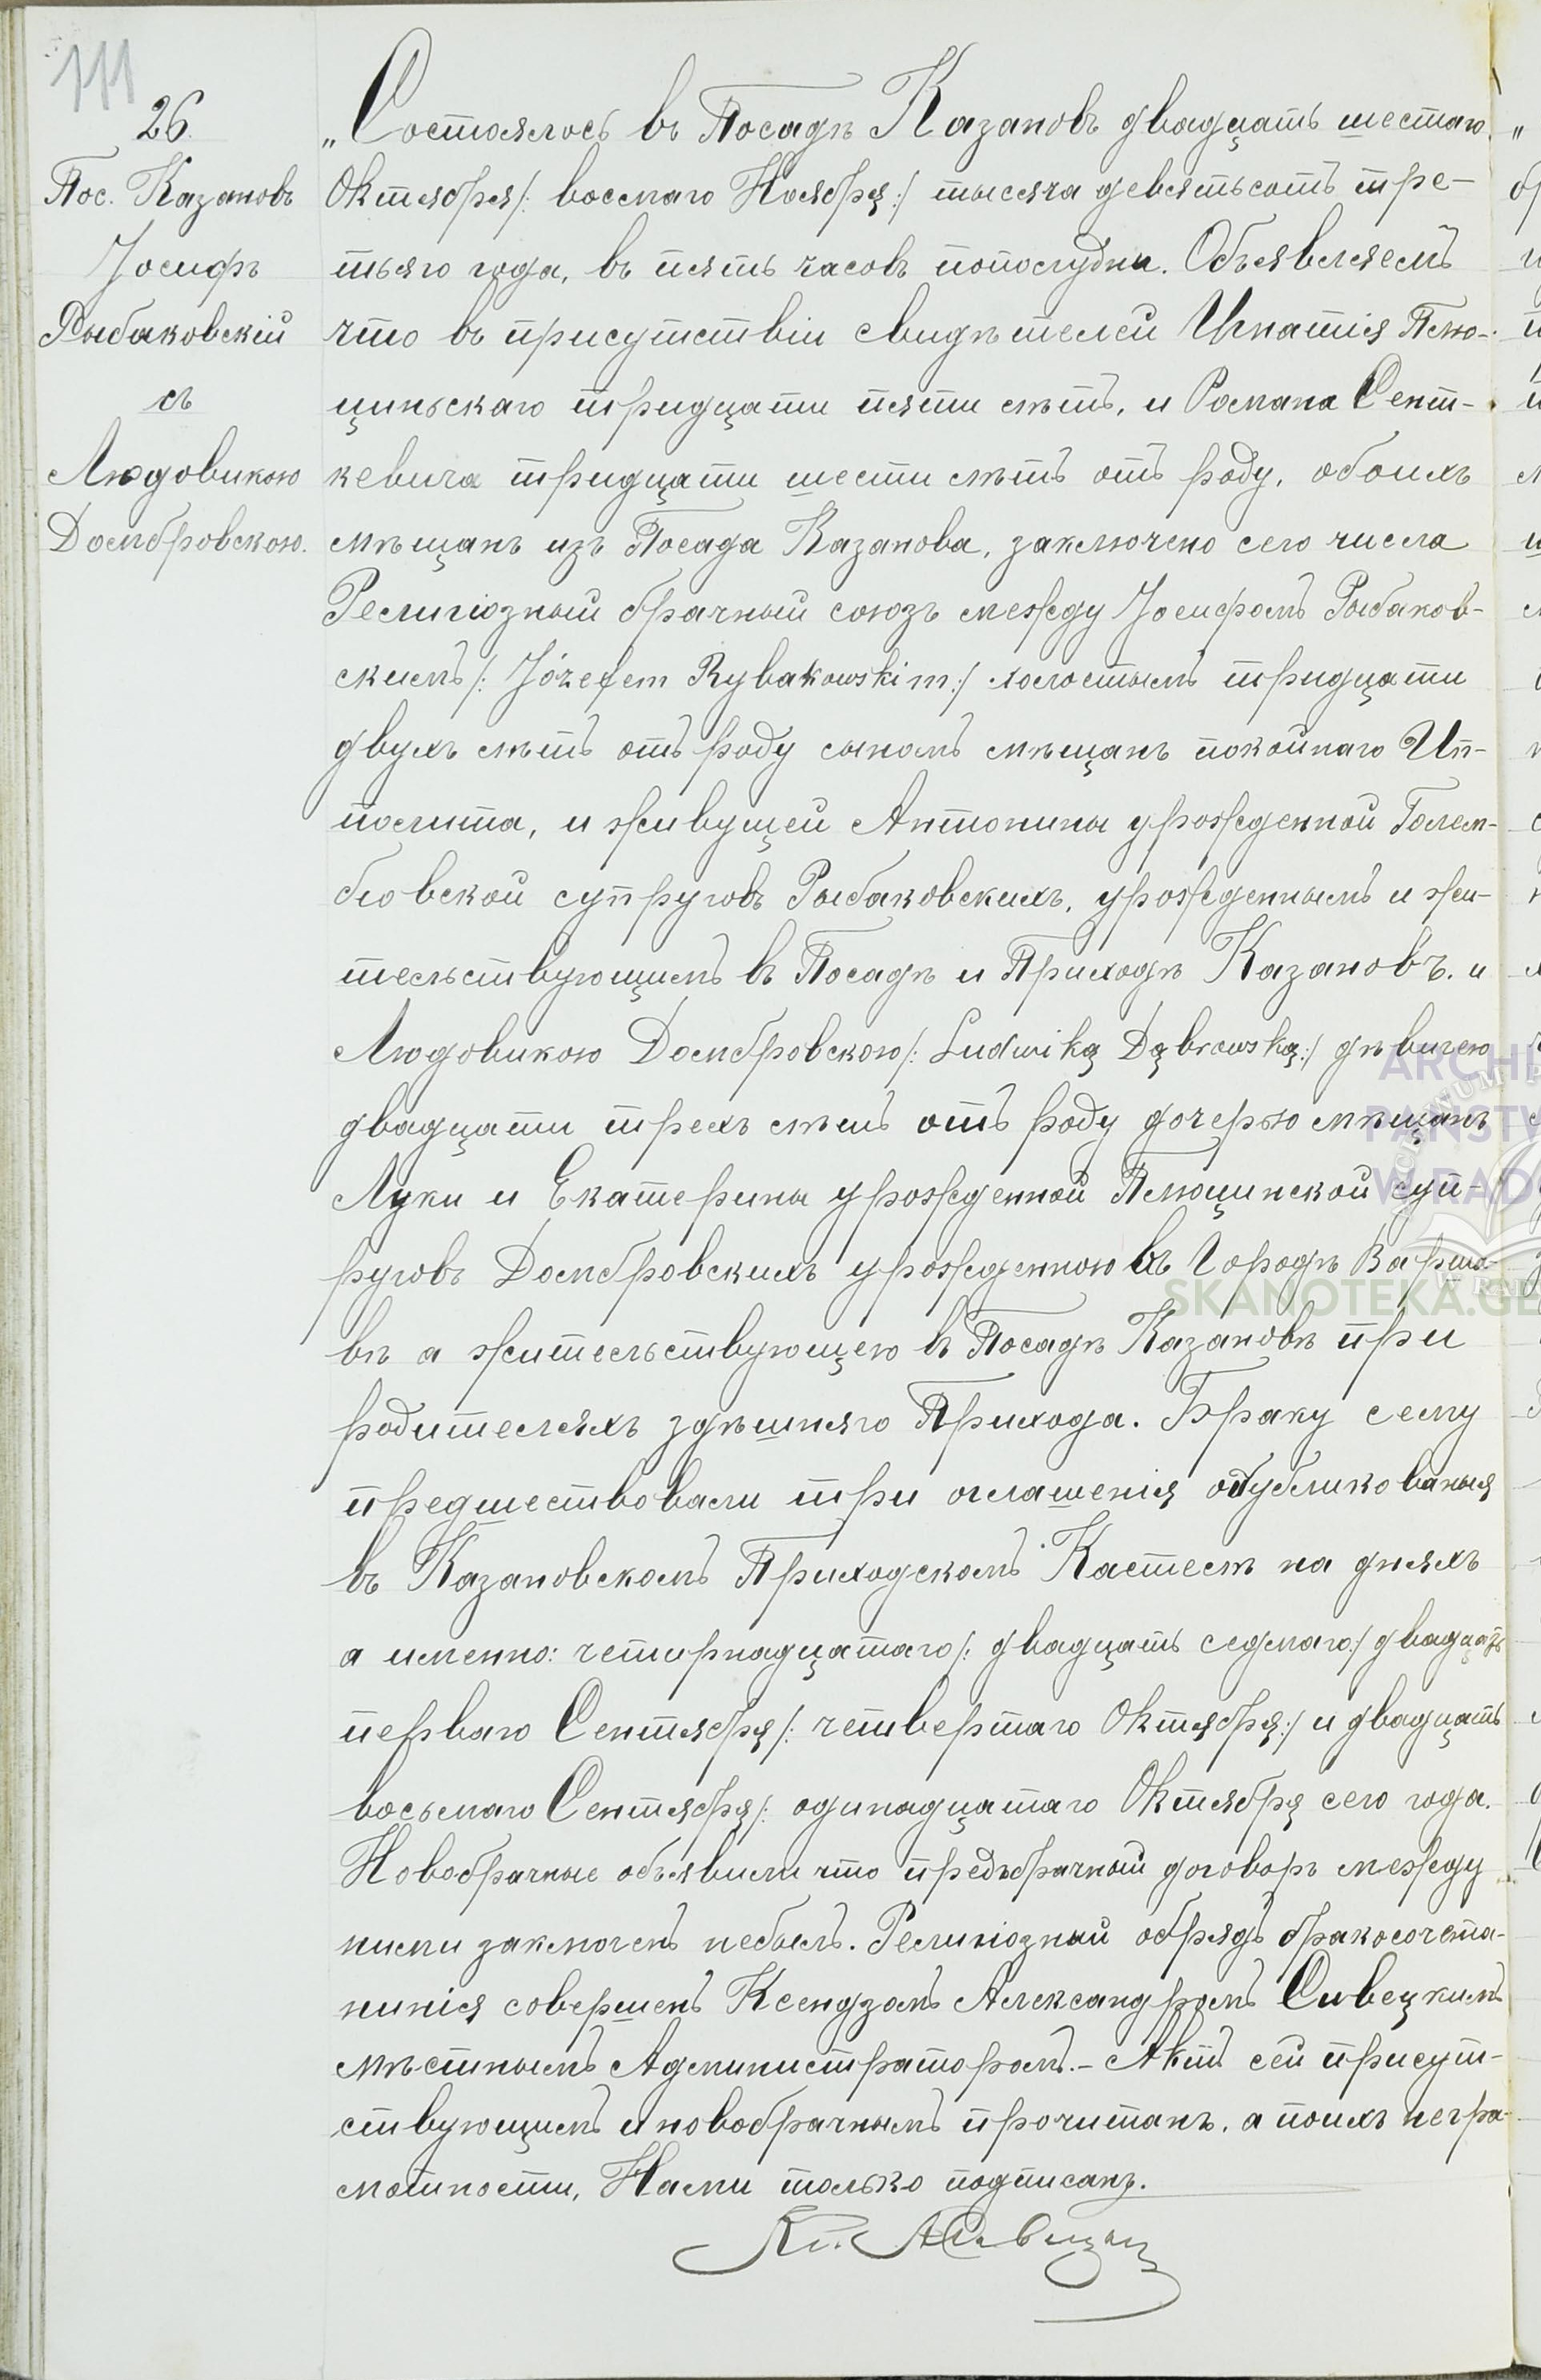 111
26.
Пос. Казановъ
Іосифъ
Рыбаковскій
съ
Людовикою
Домбровскою.
„Состоялось въ Посадѣ Казановъ двадцать шестаго
Октября /: восмаго Ноября :/ тысяча девятьсотъ тре-
тьяго года, въ пять часовъ пополудни. Объявляемъ
что въ присутствіи свидѣтелей Игнатія Плю-
циньскаго тридцати пяти лѣтъ, и Романа Сент-
кевича тридцати шести лѣтъ отъ роду, обоихъ
мѣщанъ изъ Посада Казанова, заключено сего числа
Религіозный брачный союзъ между Іосифомъ Рыбаков-
скимъ /: Józefem Rybakowskim :/ холостымъ тридцати
двухъ лѣтъ отъ роду сыномъ мѣщанъ покойнаго Ип-
полита, и живущей Антонины урожденной Голем-
біовской супруговъ Рыбаковскихъ, урожденнымъ и жи-
тельствующимъ въ Посадѣ и Приходѣ Казановъ. и
Людовикою Домбровскою /: Ludwiką Dąbrowską :/ дѣвицею
двадцати трехъ лѣтъ отъ роду дочерью мѣщанъ
Луки и Екатерины урожденной Плюцинской суп-
руговъ Домбровскихъ урожденною въ Городѣ Варша-
вѣ а жительствующею въ Посадѣ Казановѣ при
родителяхъ здѣшняго Прихода. Браку сему
предшествовали три оглашенія
въ Казановскомъ Приходскомъ Костелѣ на дняхъ
а именно: четирнадцатаго /: двадцать седмаго :/ двадцать
перваго Сентября /: четвертаго Октября :/ и двадцать
восьмаго Сентября /: одинадцатаго Октября сего года.
Новобрачные объявили что предъбрачный договоръ между
ними заключенъ небылъ. Религіозный обрядъ бракосочета-
нинія совершенъ Ксендзомъ Александромъ Сивецкимъ
мѣстнымъ Администраторомъ. – Актъ сей присут-
ствующимъ и новобрачнымъ прочитанъ, а поихъ негра-
мотности, Нами только подписанъ.
Кс. А Сивецкій
ARCHI
PAŃSTW
W RAD
SKANOTEKA.GE